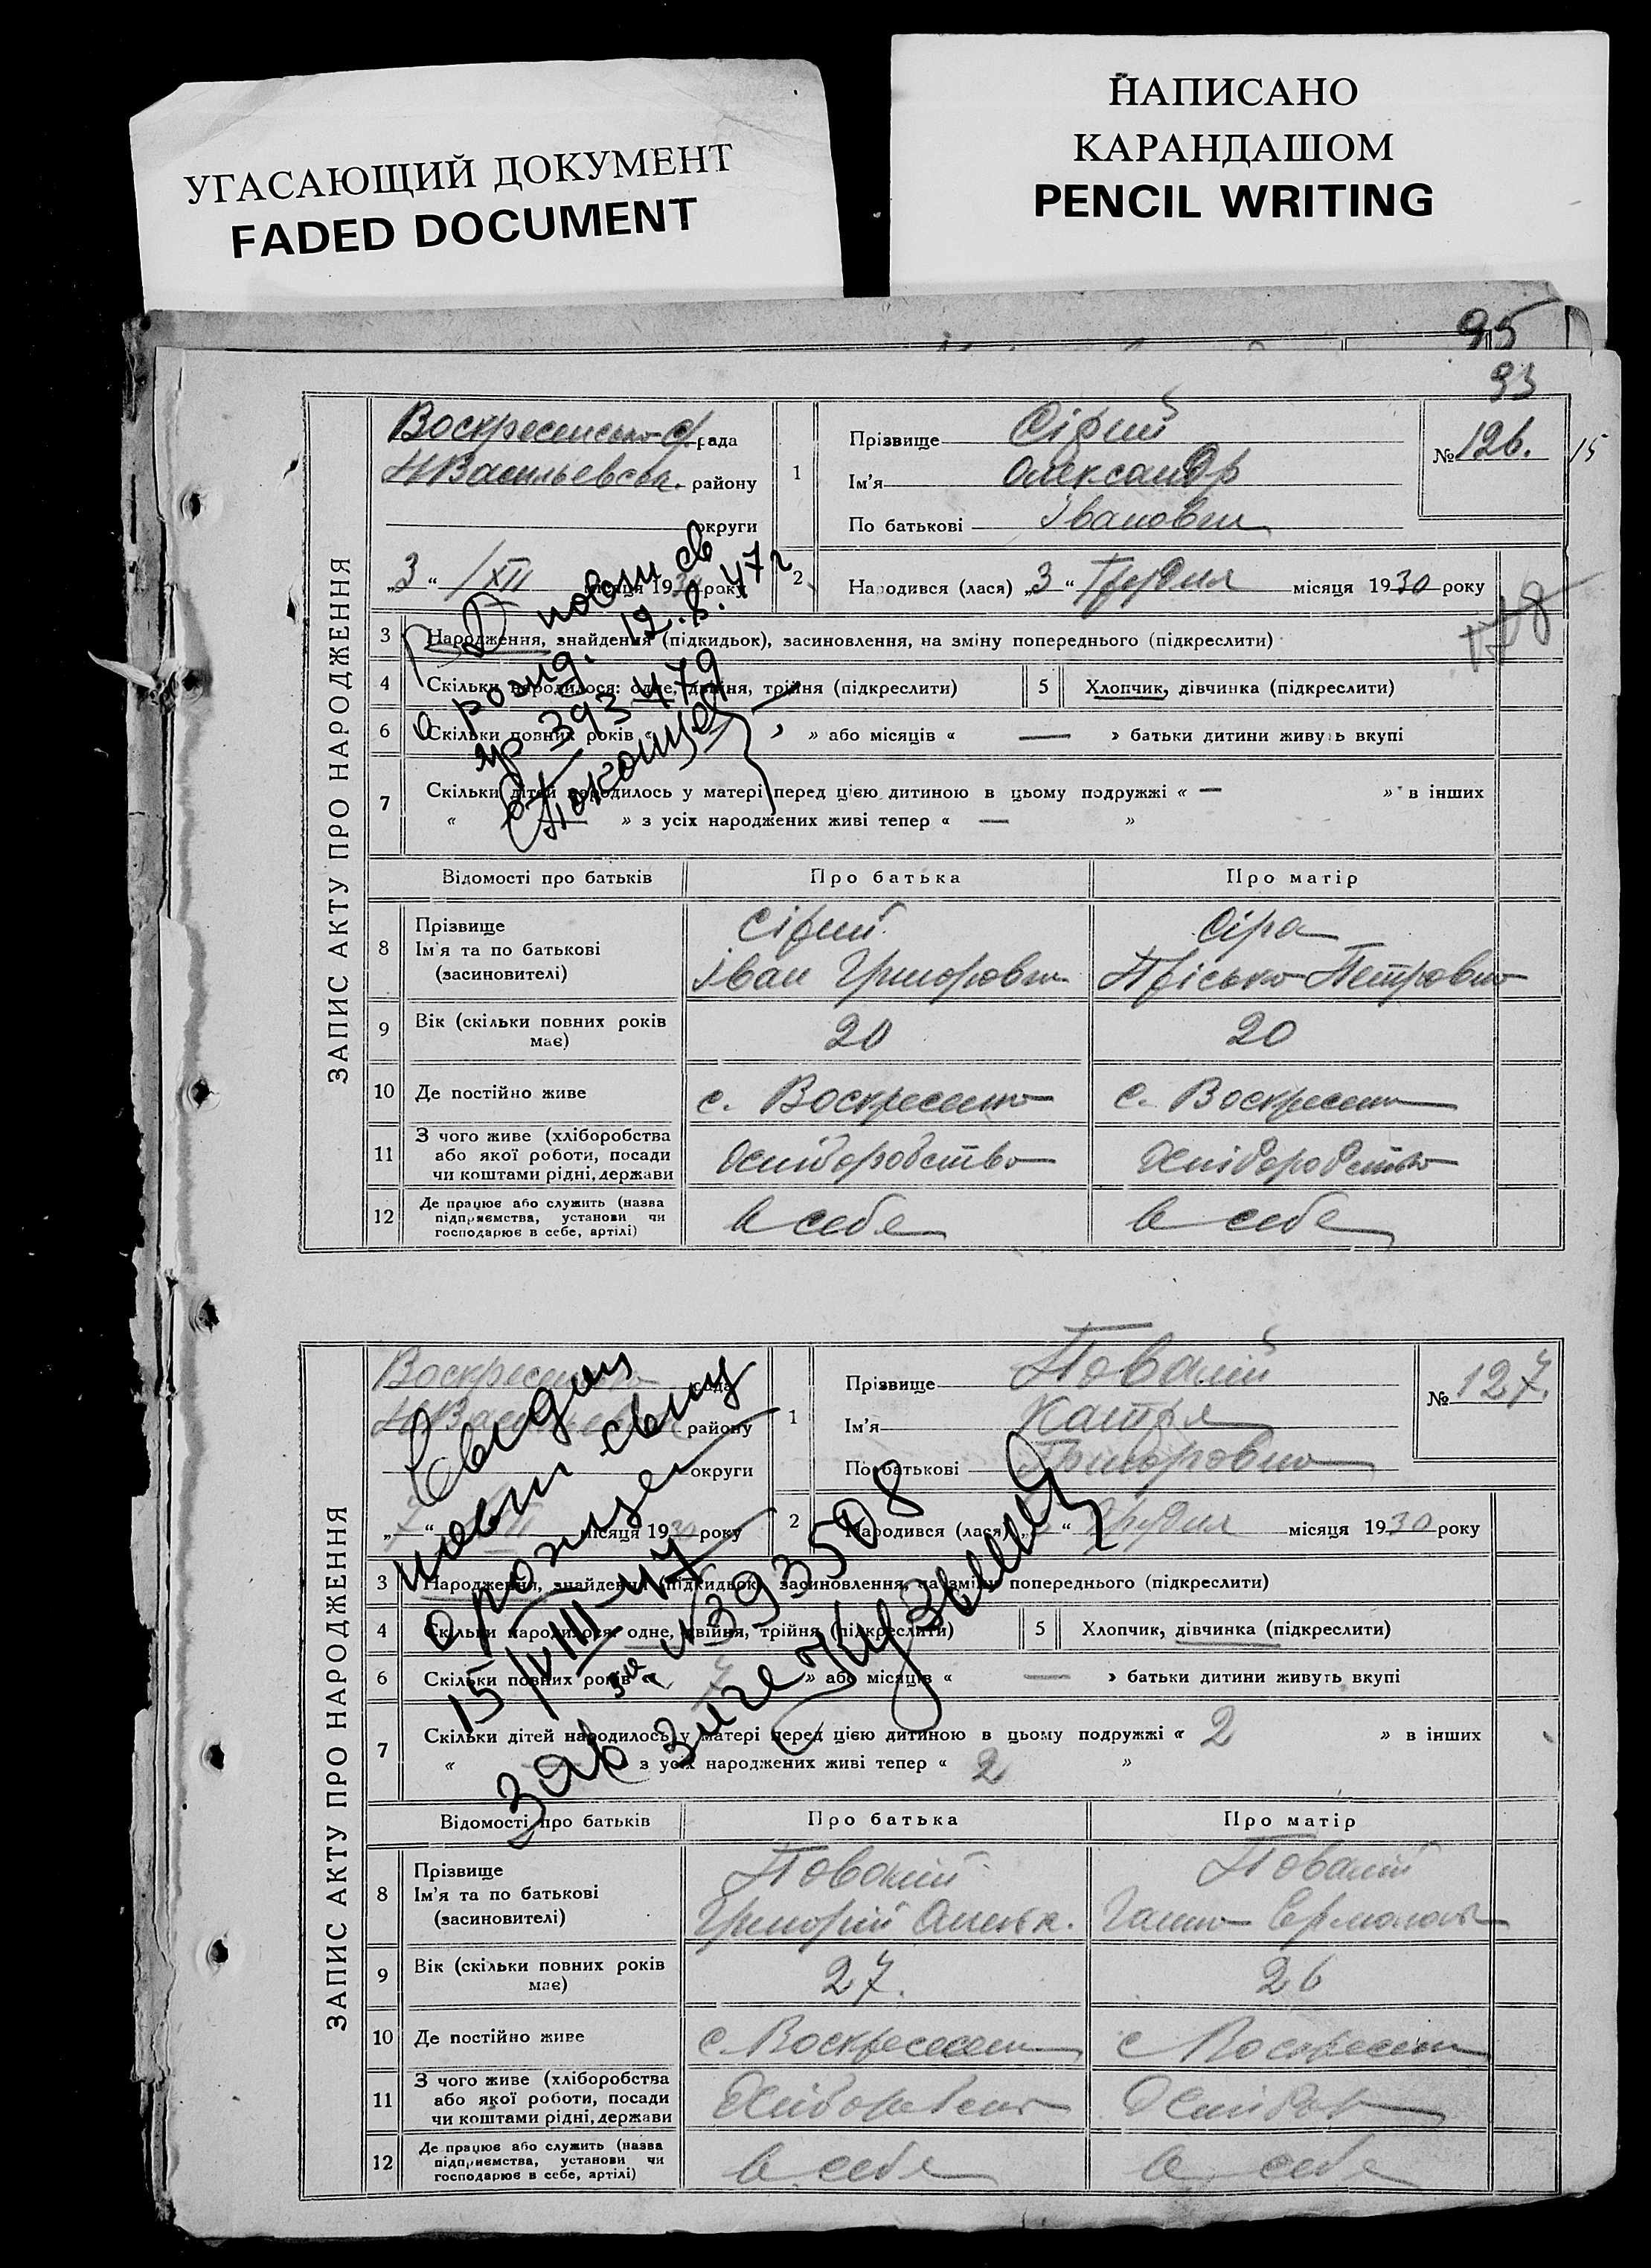 УГАСАЮЩИЙ ДОКУМЕНТ
FADED DOCUMENT
НАПИСАНО
КАРАНДАШОМ
PENCIL WRITING
95
93
ЗАПИС АКТУ ПРО НАРОДЖЕННЯ
рада
району
округи
„3“ /XII місяця 1930 року
1
Прізвище Сірий
Ім'я Олександр
По батькові Іванович
№ 126.
15
2
Народився (лася) „3“ Грудня місяця 1930 року
178
3 Народження, знайдення (підкидьок), засиновлення, на зміну попереднього (підкреслити)
4 Скільки народилося: одне, двійня, трійня (підкреслити)
5 Хлопчик, дівчинка (підкреслити)
6 Скільки повних років « » або місяців « — » батьки дитини живуть вкупі
7 Скільки дітей народилось у матері перед цією дитиною в цьому подружжі « — » в інших
« — » з усіх народжених живі тепер « — »
повт. св
12.8.47 г
393479
Відомості про батьків Про батька Про матір
8 Прізвище
Ім'я та по батькові
(засновителі)
Сірий
Іван Григорович
Сіра
Пріська Петровна
9 Вік (скільки повних років має) 20 20
10 Де постійно живе с. Воскресенка с. Воскресенка
11 З чого живе (хліборобства
або якої роботи, посади
чи коштами рідні, держави
Хліборобство Хліборобство
12 Де працює або служить (назва
підприємства, установи чи
господарює в себе, артілі)
в себе в себе
ЗАПИС АКТУ ПРО НАРОДЖЕННЯ
рада
району
округи
„7“ XII місяця 1930 року
1
Прізвище Повалій
Ім'я Катря
По батькові Григоровна
№ 127.
2
Народився (лася) „ “ Грудня місяця 1930 року
3 Народження, знайдення (підкидьок), засиновлення, на зміну попереднього (підкреслити)
4 Скільки народилося: одне, двійня, трійня (підкреслити)
5 Хлопчик, дівчинка (підкреслити)
6 Скільки повних років « 7 » або місяців « — » батьки дитини живуть вкупі
7 Скільки дітей народилось у матері перед цією дитиною в цьому подружжі « 2 » в інших
« — з усіх народжених живі тепер « 2 »
о рожден
15/VIII-47
№393508
Відомості про батьків Про батька Про матір
8 Прізвище
Ім'я та по батькові
(засиновителі)
Повалій
Григорій
Повалій
Ганна
9 Вік (скільки повних років має) 27. 26
10 Де постійно живе с. Воскресенка с Воскресенка
11 З чого живе (хліборобства
або якої роботи, посади
чи коштами рідні, держави
12 Де працює або служить (назва
підприємства, установи чи
господарює в себе, артілі)
в себе в себе